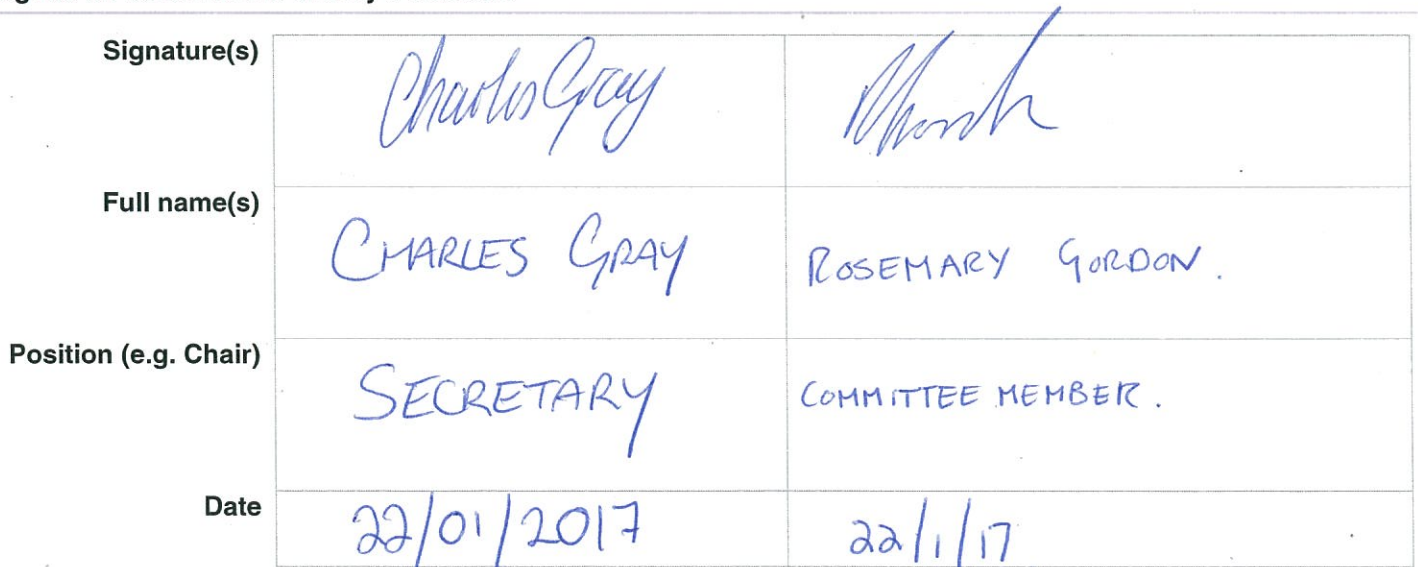 Signature(s) Charles Gray
Full name(s) CHARLES GRAY ROSEMARY GORDON.
Position (e.g. Chair) SECRETARY COMMITTEE MEMBER.
Date 22/01/2017 22/1/17